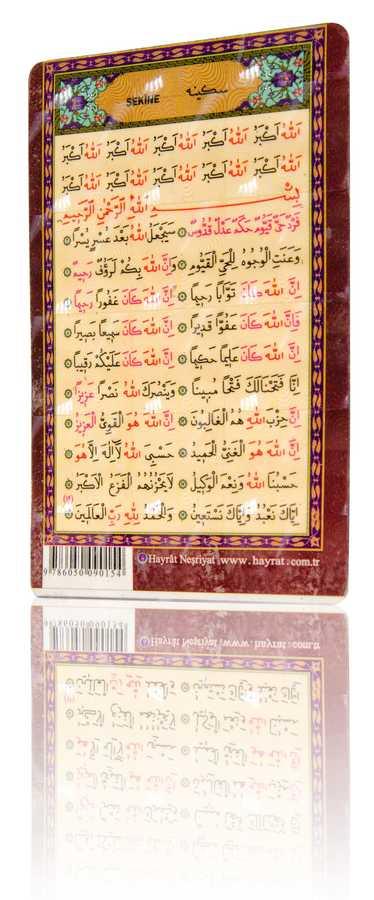 سكينه SEKİNE
اَللّٰهُ اَكْبَرُ اَللّٰهُ اَكْبَرُ اَللّٰهُ اَكْبَرُ اَللّٰهُ اَكْبَرُ اَللّٰهُ اَكْبَرُ
اَللّٰهُ اَكْبَرُ اَللّٰهُ اَكْبَرُ اَللّٰهُ اَكْبَرُ اَللّٰهُ اَكْبَرُ اَللّٰهُ اَكْبَرُ
بِسْمِ اللّٰهِ الرَّحْمٰنِ الرَّحِيمِ
فَرْدٌ حَىٌّ قَيُّومٌ حَكَمٌ عَدْلٌ قُدُّوسٌ ۞ سَيَجْعَلُ اللّٰهُ بَعْدَ عُسْرٍ يُسْرًا ۞
وَعَنَتِ الْوُجُوهُ لِلْحَىِّ الْقَيُّومِ ۞ وَاِنَّ اللّٰهَ بِكُمْ لَرَؤُفٌ رَحِيمٌ ۞
اِنَّ اللّٰهَ كَانَ تَوَّابًا رَحِيمًا ۞ اِنَّ اللّٰهَ كَانَ غَفُورًا رَحِيمًا ۞
فَاِنَّ اللّٰهَ كَانَ عَفُوًّا قَدِيرًا ۞ اِنَّ اللّٰهَ كَانَ سَمِيعًا بَصِيرًا ۞
اِنَّ اللّٰهَ كَانَ عَلِيمًا حَكِيمًا ۞ اِنَّ اللّٰهَ كَانَ عَلَيْكُمْ رَقِيبًا ۞
اِنَّا فَتَحْنَا لَكَ فَتْحًا مُبِينًا ۞ وَيَنْصُرَكَ اللّٰهُ نَصْرًا عَزِيزًا ۞
اِنَّ حِزْبَ اللّٰهِ هُمُ الْغَالِبُونَ ۞ اِنَّ اللّٰهَ هُوَ الْقَوِىُّ الْعَزِيزُ ۞
اِنَّ اللّٰهَ هُوَ الْغَنِىُّ الْحَمِيدُ ۞ حَسْبِىَ اللّٰهُ لَا اِلٰهَ اِلَّا هُوَ ۞
حَسْبُنَا اللّٰهُ وَنِعْمَ الْوَكِيلُ ۞ لَا يَحْزُنُهُمُ الْفَزَعُ الْاَكْبَرُ ۞
اِيَّاكَ نَعْبُدُ وَاِيَّاكَ نَسْتَعِينُ ۞ وَالْحَمْدُ لِلّٰهِ رَبِّ الْعَالَمِينَ ۞
9 786050 090154
Hayrât Neşriyat www.hayrat.com.tr